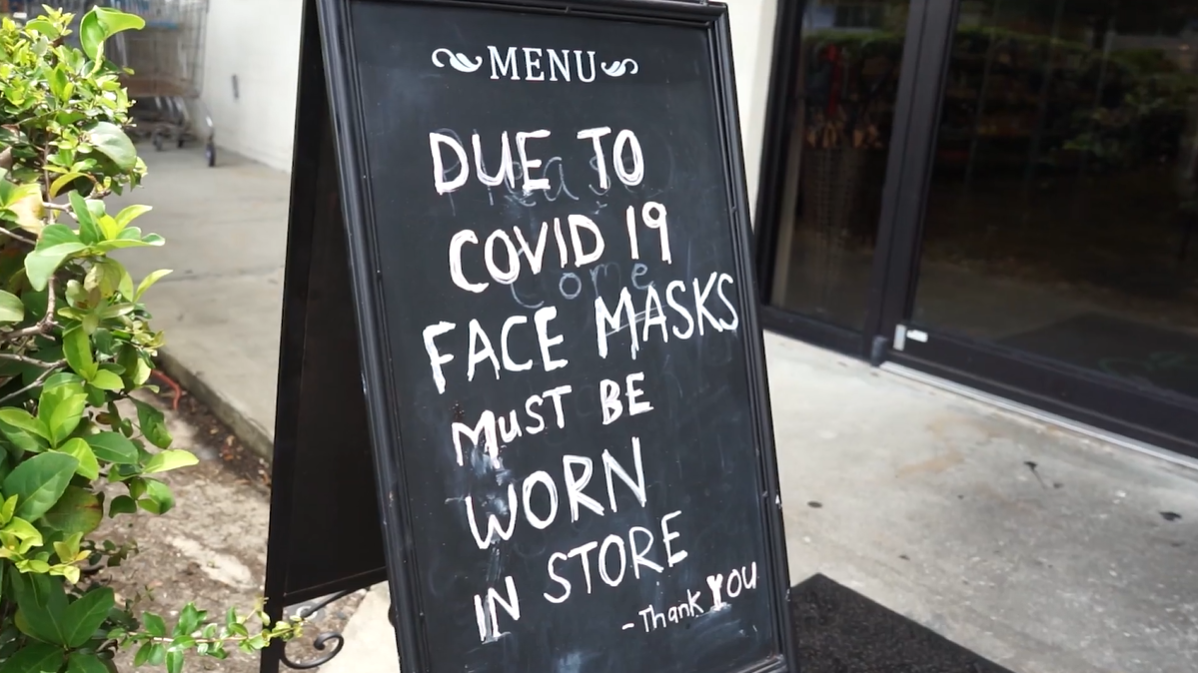 MENU
DUE TO
COVID 19
FACE MASKS
MUST BE
WORN
IN STORE
-Thank YOU